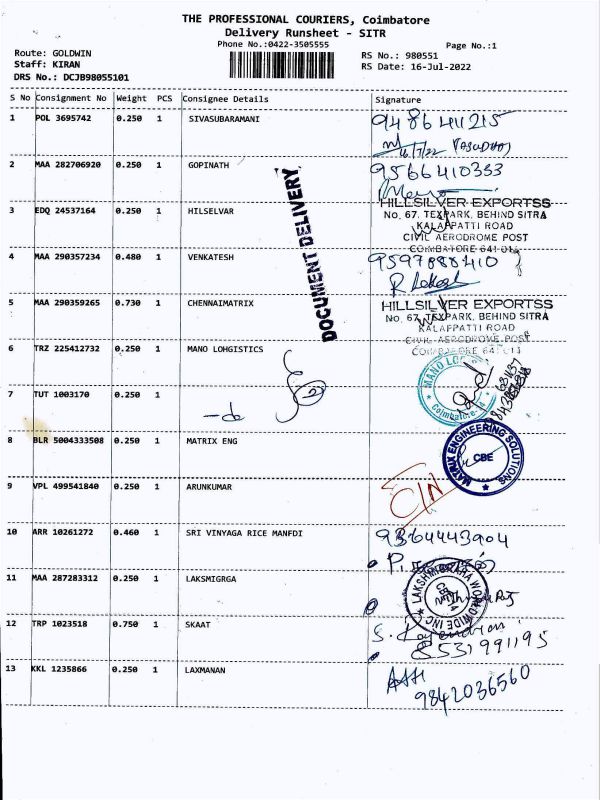 THE PROFESSIONAL COURIERS, Coimbatore
Delivery Runsheet - SITR
Phone No.:0422-3505555
Page No.:1
Route: GOLDWIN
Staff: KIRAN
DRS No.: DCJB98055101
RS No.: 980551
RS Date: 16-Jul-2022
S No Consignment No Weight PCS Consignee Details Signature
1 POL 3695742 0.250 1 SIVASUBARAMANI
16/7/22
2 MAA 282706920 0.250 1 GOPINATH 9566410333
3 EDQ 24537164 0.250 1 HILSELVAR
HILLSILVER EXPORTSS
No. 67, TEXPARK, BEHIND SITRA
KALAPPATTI ROAD
CIVIL AERODROME POST
COIMBATORE 641 014
4 MAA 290357234 0.480 1 VENKATESH 9597888410
5 MAA 290359265 0.730 1 CHENNAIMATRIX
HILLSILVER EXPORTSS
No. 67, TEXPARK, BEHIND SITRA
KALAPPATTI ROAD
CIVIL AERODROME POST
COIMBATORE 641 014
DOCUMENT DELIVERY
6 TRZ 225412732 0.250 1 MANO LOHGISTICS
7 TUT 1003170 0.250 1 -do
Coimbatore
8 BLR 5004333508 0.250 1 MATRIX ENG
MATRIX ENGINEERING SOLUTIONS
CBE
9 VPL 499541840 0.250 1 ARUNKUMAR
C/N
10 ARR 10261272 0.460 1 SRI VINYAGA RICE MANFDI 9364443904
11 MAA 287283312 0.250 1 LAKSMIGRGA
WORLDWIDE INC
12 TRP 1023518 0.750 1 SKAAT
8531991195
13 KKL 1235866 0.250 1 LAXMANAN
9842036560